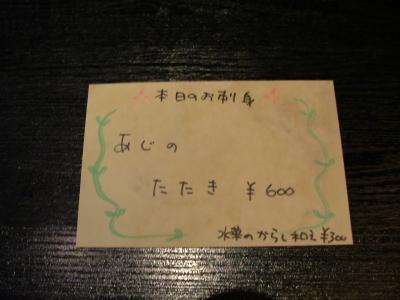 本日のお刺身
あじの
たたき ¥600
水菜のからし和え ¥300